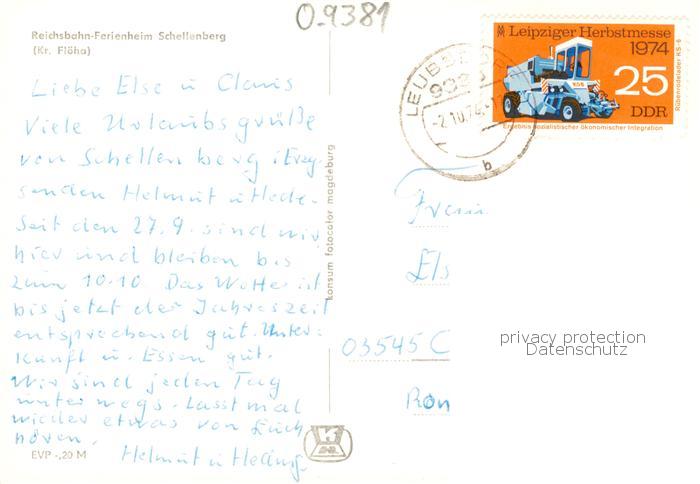 0.9381
Reichsbahn-Ferienheim Schellenberg
(Kr. Flöha)
Liebe Else u Claus
Viele Urlaubsgrüße
von Schellenberg i Erzg.
senden Helmut u Hede.
Seit den 27.9. sind wir
hier und bleiben bis
zum 10.10. Das Wetter ist
bis jetzt der Jahreszeit
entsprechend gut. Unter=
kunft u. Essen gut.
Wir sind jeden Tag
unterwegs. Lasst mal
wieder etwas von Euch
hören.
Helmut u
EVP -,20 M
konsum fotocolor magdeburg
Leipziger Herbstmesse
1974
25
DDR
Rübenrodelader KS-6
Ergebnis sozialistischer ökonomischer Integration
-2.10.74
b
Frau
Els
03545 C
Ron
privacy protection
Datenschutz